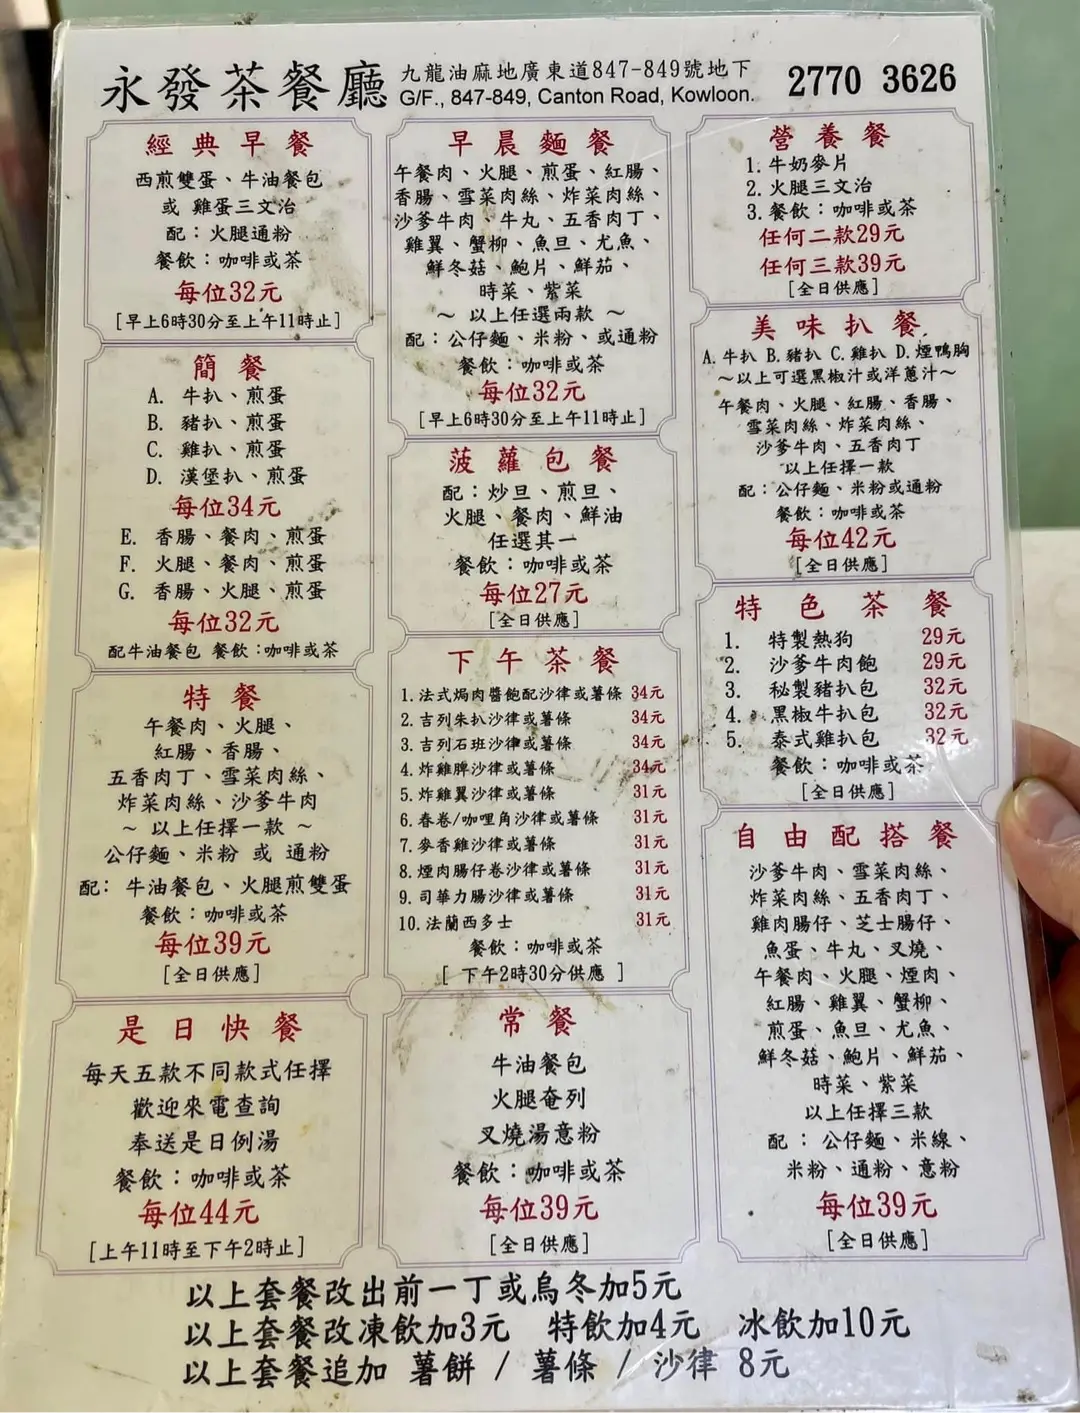 永發茶餐廳
九龍油麻地廣東道847-849號地下
G/F., 847-849, Canton Road, Kowloon.
2770 3626
經典早餐
西煎雙蛋、牛油餐包
或 雞蛋三文治
配：火腿通粉
餐飲：咖啡或茶
每位32元
[早上6時30分至上午11時止]
簡餐
A. 牛扒、煎蛋
B. 豬扒、煎蛋
C. 雞扒、煎蛋
D. 漢堡扒、煎蛋
每位34元
E. 香腸、餐肉、煎蛋
F. 火腿、餐肉、煎蛋
G. 香腸、火腿、煎蛋
每位32元
配牛油餐包 餐飲：咖啡或茶
特餐
午餐肉、火腿、
紅腸、香腸、
五香肉丁、雪菜肉絲、
炸菜肉絲、沙爹牛肉
～ 以上任擇一款 ～
公仔麵、米粉 或 通粉
配: 牛油餐包、火腿煎雙蛋
餐飲：咖啡或茶
每位39元
[全日供應]
是日快餐
每天五款不同款式任擇
歡迎來電查詢
奉送是日例湯
餐飲：咖啡或茶
每位44元
[上午11時至下午2時止]
早晨麵餐
午餐肉、火腿、煎蛋、紅腸、
香腸、雪菜肉絲、炸菜肉絲、
沙爹牛肉、牛丸、五香肉丁、
雞翼、蟹柳、魚旦、尤魚、
鮮冬菇、鮑片、鮮茄、
時菜、紫菜
～ 以上任選兩款 ～
配：公仔麵、米粉、或通粉
餐飲：咖啡或茶
每位32元
[早上6時30分至上午11時止]
菠蘿包餐
配：炒旦、煎旦、
火腿、餐肉、鮮油
任選其一
餐飲：咖啡或茶
每位27元
[全日供應]
下午茶餐
1. 法式焗肉醬飽配沙律或薯條 34元
2. 吉列朱扒沙律或薯條 34元
3. 吉列石班沙律或薯條 34元
4. 炸雞脾沙律或薯條 34元
5. 炸雞翼沙律或薯條 31元
6. 春卷/咖哩角沙律或薯條 31元
7. 麥香雞沙律或薯條 31元
8. 煙肉腸仔卷沙律或薯條 31元
9. 司華力腸沙律或薯條 31元
10. 法蘭西多士 31元
餐飲：咖啡或茶
[ 下午2時30分供應 ]
常餐
牛油餐包
火腿奄列
叉燒湯意粉
餐飲：咖啡或茶
每位39元
[全日供應]
營養餐
1. 牛奶麥片
2. 火腿三文治
3. 餐飲：咖啡或茶
任何二款29元
任何三款39元
[全日供應]
美味扒餐
A. 牛扒 B. 豬扒 C. 雞扒 D. 煙鴨胸
～以上可選黑椒汁或洋蔥汁～
午餐肉、火腿、紅腸、香腸、
雪菜肉絲、炸菜肉絲、
沙爹牛肉、五香肉丁
以上任擇一款
配：公仔麵、米粉或通粉
餐飲：咖啡或茶
每位42元
[全日供應]
特色茶餐
1. 特製熱狗 29元
2. 沙爹牛肉飽 29元
3. 秘製豬扒包 32元
4. 黑椒牛扒包 32元
5. 泰式雞扒包 32元
餐飲：咖啡或茶
[全日供應]
自由配搭餐
沙爹牛肉、雪菜肉絲、
炸菜肉絲、五香肉丁、
雞肉腸仔、芝士腸仔、
魚蛋、牛丸、叉燒、
午餐肉、火腿、煙肉、
紅腸、雞翼、蟹柳、
煎蛋、魚旦、尤魚、
鮮冬菇、鮑片、鮮茄、
時菜、紫菜
以上任擇三款
配 ：公仔麵、米線、
米粉、通粉、意粉
每位39元
[全日供應]
以上套餐改出前一丁或烏冬加5元
以上套餐改凍飲加3元 特飲加4元 冰飲加10元
以上套餐追加 薯餅 / 薯條 / 沙律 8元